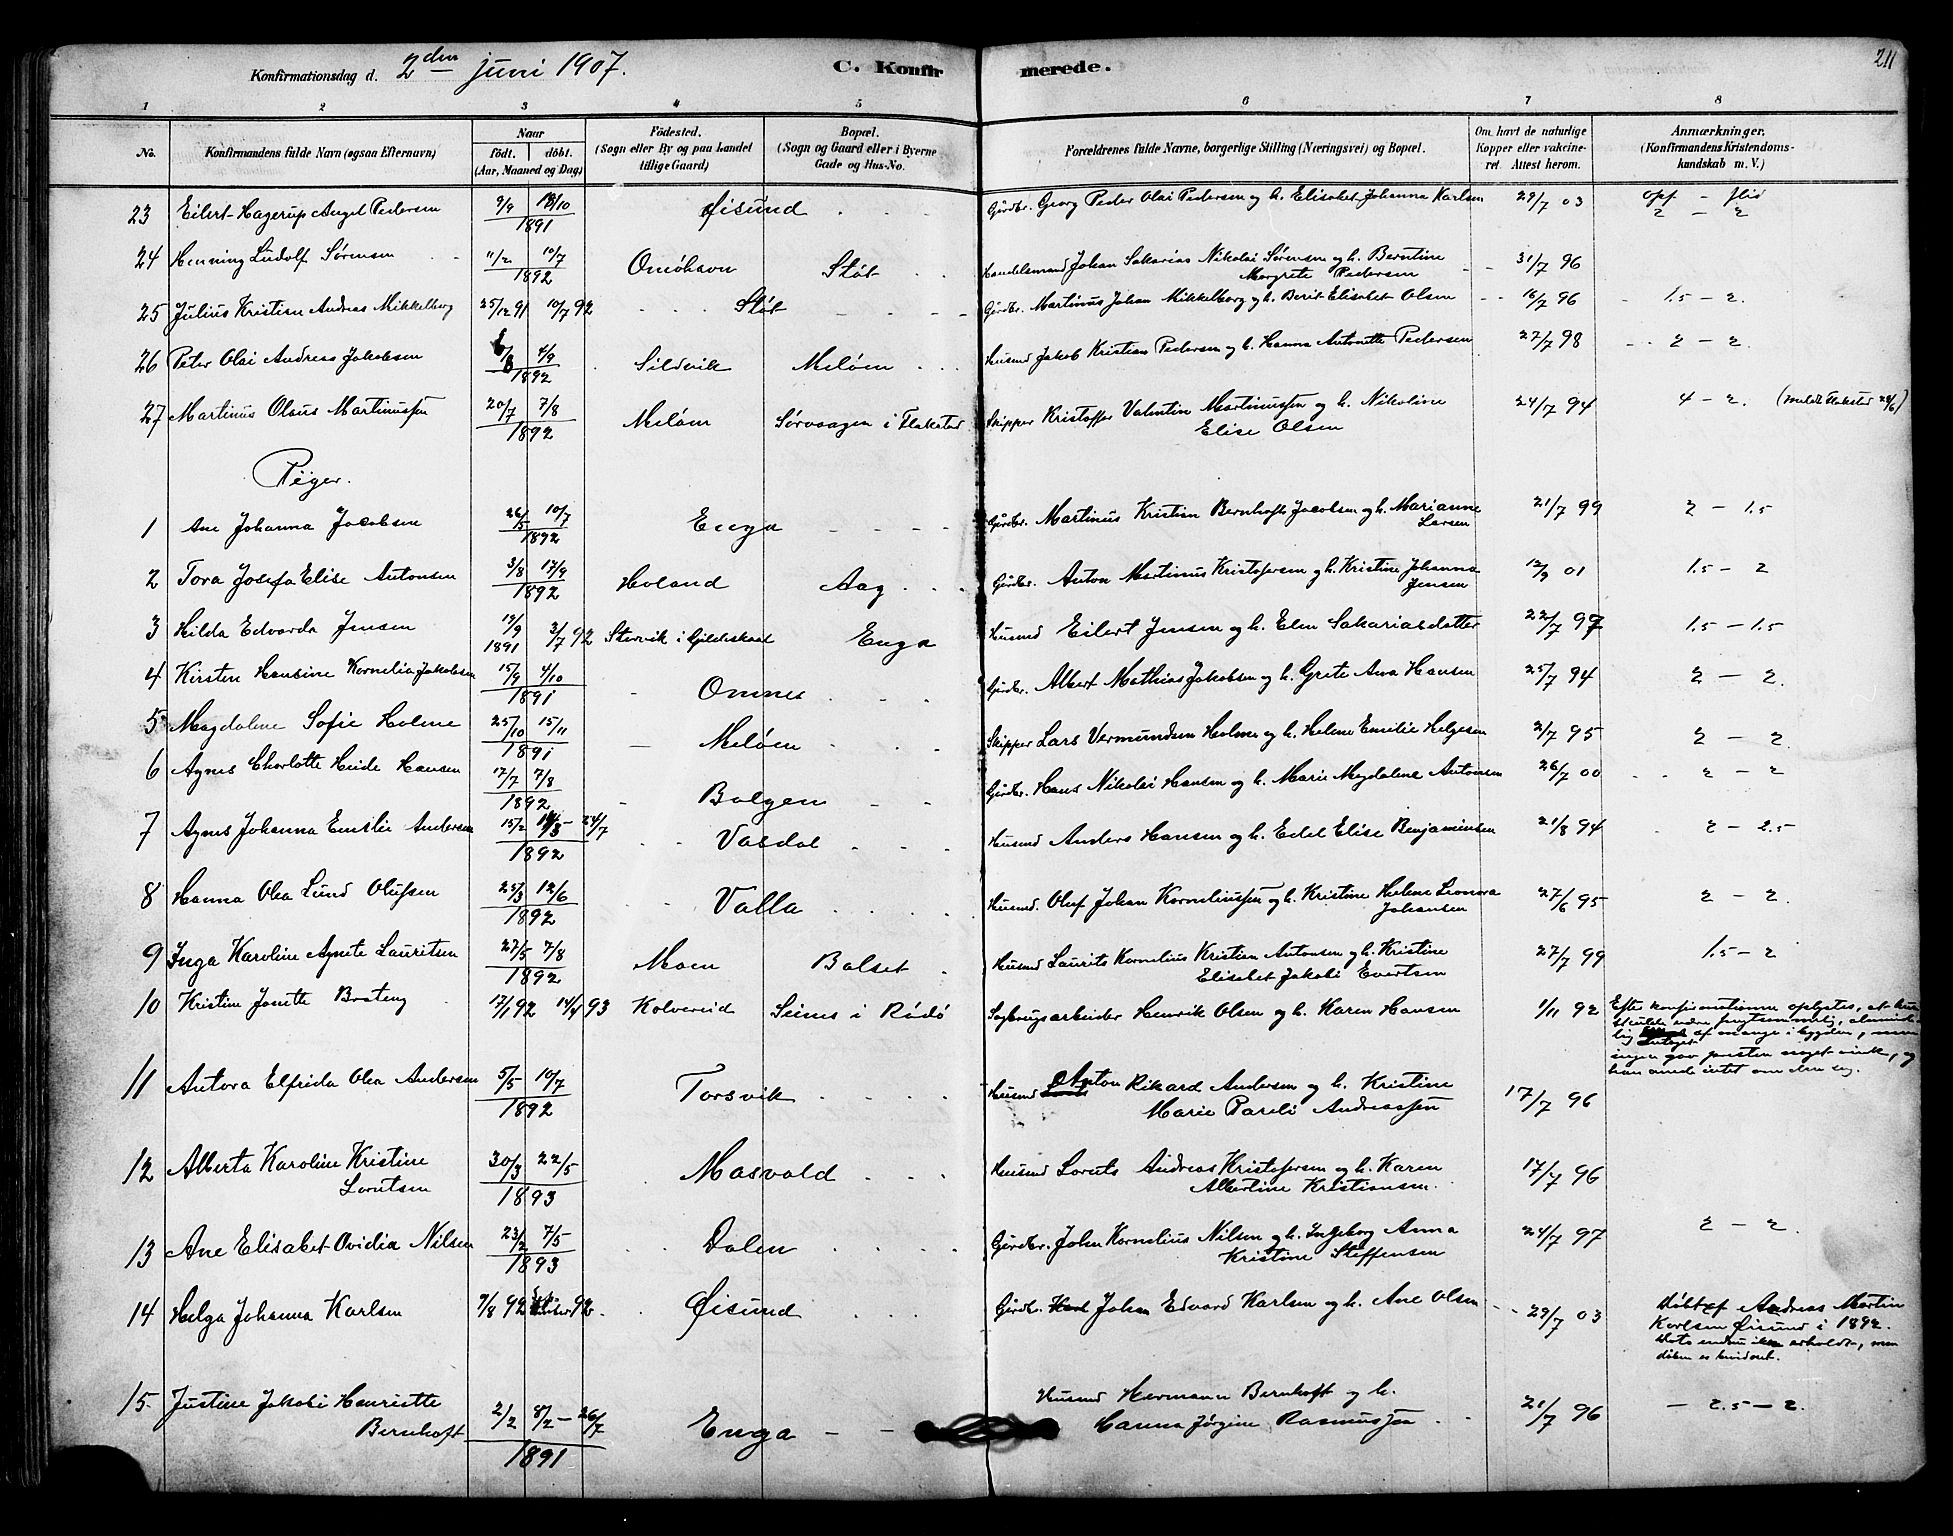 211
Konfirmationsdag d. 2den juni 1907. C. Konfirmerede.
1 2 3 4 5 6 7 8
No. Konfirmandens fulde Navn (ogsaa Efternavn) Naar födt. döbt. (Aar, Maaned og Dag) Födested. (Sogn eller By og paa Landet tillige Gaard) Bopæl. (Sogn og Gaard eller i Byerne Gade og Hus-No. Forældrenes fulde Navne, borgerlige Stilling (Næringsvei) og Bopæl. Om havt de naturlige Kopper eller vakcineret. Attest herom. Anmærkninger. (Konfirmandens Kristendomskundskab m. V.)
23 Eilert Hagerup Angel Pedersen 9/9 18/10 1891 Øisund Gårdbr. Georg Peder Olai Pedersen og h. Elisabet Johanna Karlsen 29/7 03 opf - flid 2 - 2
24 Henning Ludolf Sørensen 11/2 10/7 1892 Støt Handelsmand Johan Sakarias Nikolai Sørensen og h. Berntine
Margrete Pedersen 31/7 96
25 Julius Kristian Andreas Mikkelborg 25/12 91 10/7 92 Støt Gårdbr. Martinus Johan Mikkelborg og h. Berit Elisabet Olsen 16/7 96 1.5 - 2.
26 Peter Olai Andreas Jakobsen 6/8 4/9 1892 Sildvik Meløen Husmd Jakob Kristian Pedersen og h. Hanna Antonette Pedersen 27/7 98 2 - 2.
27 Martinus Olaus Martinussen 20/7 7/8 1892 Meløen Sørvaagen i Flakstad Skipper Kristoffer Valentin Martinussen og h. Nikoline
Elise Olsen 24/7 94 4 - 2. (meldt Flakstad 28/6)
Piger.
1 Ane Johanna Jacobsen 26/5 10/7 1892 Enga Gårdbr. Martinus Kristian Bernhoft Jacobsen og h. Marianne
Larsen 21/7 99 2 - 1.5
2 Tora Josefa Elise Antonsen 3/8 17/9 1892 Holand Aag Gårdbr. Anton Martinus Kristofersen og h. Kristine Johanna
Jensen 12/9 01 1.5 - 2
3 Hilda Edvarda Jensen 13/9 1891 3/7 92 Storvik i Gildeskaal Enga Husmd Eilert Jensen og h. Elen Sakariasdatter 22/7 97 1.5 - 1.5
4 Kirsten Hansine Kornelia Jakobsen 15/9 4/10 1891 Omnes Gårdbr. Albert Mathias Jakobsen og h. Grete Ana Hansen 25/7 94 2 - 2.
5 Magdalene Sofie Holme 25/10 15/11 1891 Meløen Skipper Lars Vermundsen Holme og h. Helene Emilie Helgesen 2/7 95 2 - 2.
6 Agnes Charlotte Heide Hansen 17/7 7/8 1892 Bolgen Gårdbr. Hans Nikolai Hansen og h. Marie Magdalene Antonsen 26/7 00 2 - 2
7 Agnes Johanna Emilie Andersen 15/2 - 24/7 1892 Vasdal Husmd Anders Hansen og h. Edel Elise Benjaminsen 21/8 94 2 - 2.5
8 Hanna Olea Lund Olufsen 25/3 12/6 1892 Valla Husmd. Oluf Johan Korneliussen og h. Kristine Helene Leonora
Johansen 27/6 95 2 - 2.
9 Inga Karoline Agnete Lauritsen 27/5 7/8 1892 Moen Bolset Husmd Laurits Kornelius Kristian Antonsen og h. Kristine
Elisabet Jakobi Evertsen 27/7 99 1.5 - 2
10 Kristine Janette Brateng 17/1 92 14/4 93 Kolvereid Selnes i Rödö Sagbrugsarbeider Henrik Olsen og h. Karen Hansen 1/11 92 Efter konfirmationen oplystes, at hun
skulde være frugtsommelig, almindelig
antaget af mange i bygden, men
ingen gav presten noget vink, og
han anede intet om den sag.
11 Antora Elfrida Olea Andersen 5/5 10/7 1892 Torsvik Husmd Anton Rikard Andersen og h. Kristine
Marie Pareli Andreassen 17/7 96
12 Alberta Karoline Kristine
Lorentsen 30/3 22/5 1893 Masvold Husmd Lorents Andreas Kristofersen og h. Karen
Albertine Kristiansen. 17/7 96
13 Ane Elisabet Ovidia Nilsen 23/2 7/5 1893 Dalen Gårdbr. John Kornelius Nilsen og h. Ingeborg Anna
Kristine Steffensen 24/7 97 2 - 2.
14 Helga Johanna Karlsen 7/8 92 92 Øisund Gårdbr. Johan Edvard Karlsen og h. Ane Olsen 29/7 03 Døbt af Andreas Martin
Karlsen Øisund i 1892.
Dato endnu ikke erholdt, men
dåben er bevidnet.
15. Justine Jakobi Henriette
Bernhoft 2/2 8/2 - 26/7 1891 Enga Husmd Hermann Bernhoft og h.
Hanna Jørgine Rasmussen 21/7 96 - 2.5 - 2.